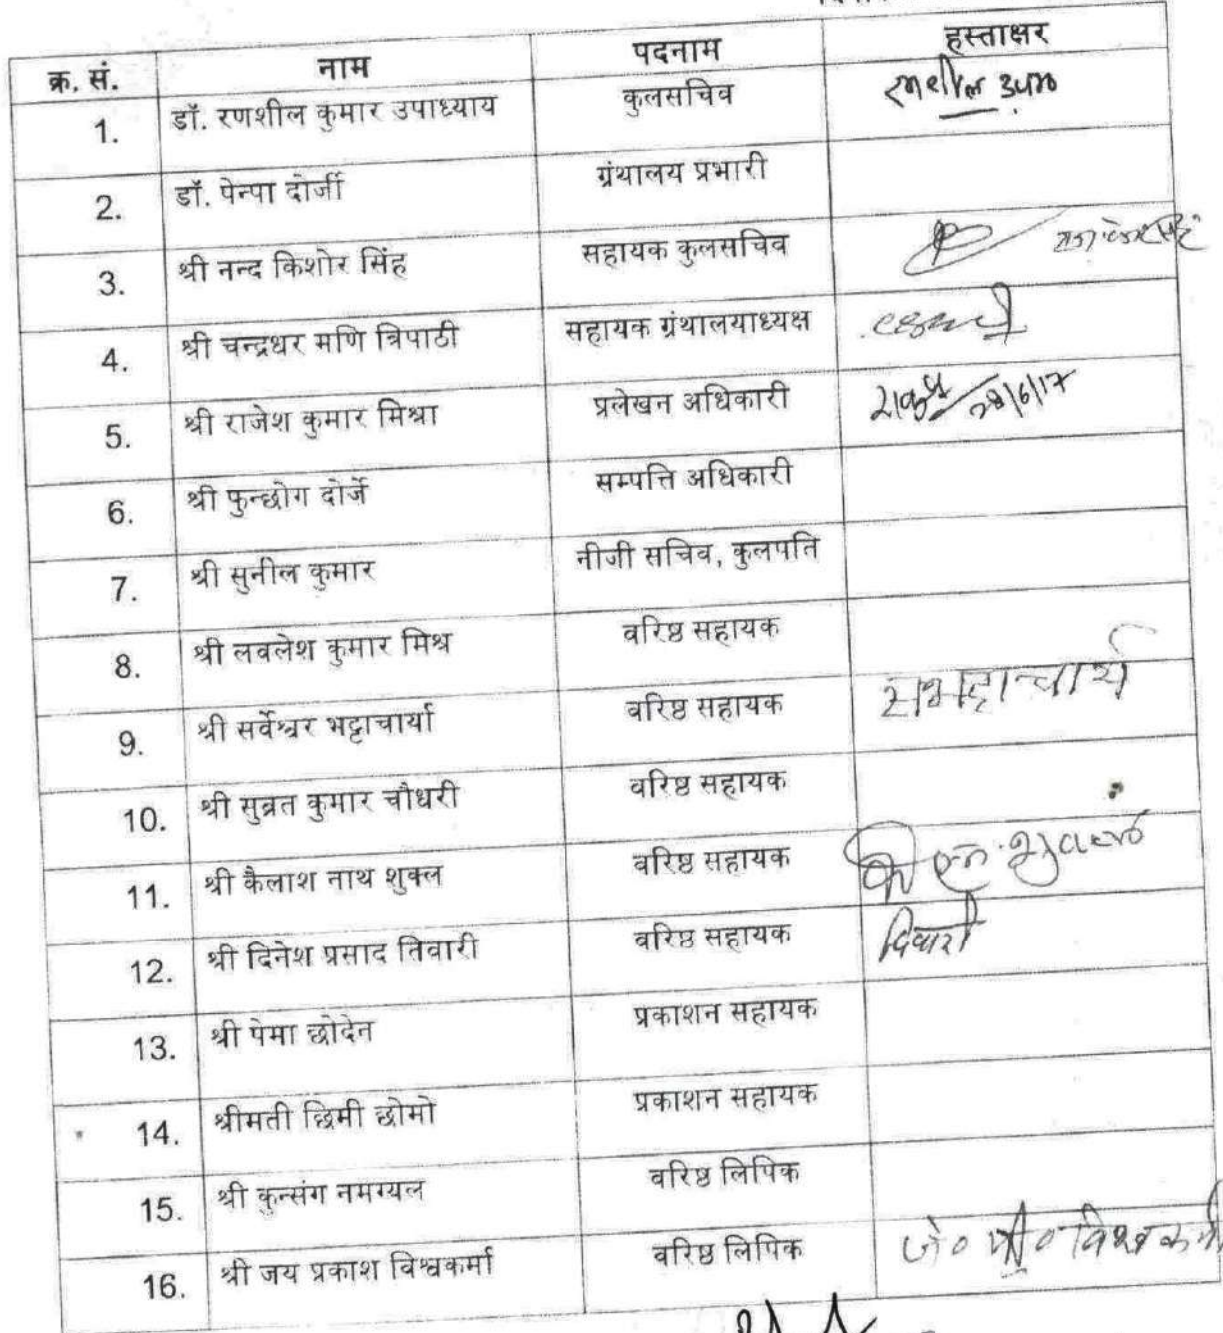 क्र. सं. नाम पदनाम हस्ताक्षर
1. डॉ. रणशील कुमार उपाध्याय कुलसचिव
2. डॉ. पेन्पा दोर्जी ग्रंथालय प्रभारी
3. श्री नन्द किशोर सिंह सहायक कुलसचिव
4. श्री चन्द्रधर मणि त्रिपाठी सहायक ग्रंथालयाध्यक्ष
5. श्री राजेश कुमार मिश्रा प्रलेखन अधिकारी 28/6/17
6. श्री फुन्छोग दोर्जे सम्पत्ति अधिकारी
7. श्री सुनील कुमार नीजी सचिव, कुलपति
8. श्री लवलेश कुमार मिश्र वरिष्ठ सहायक
9. श्री सर्वेश्वर भट्टाचार्या वरिष्ठ सहायक
10. श्री सुब्रत कुमार चौधरी वरिष्ठ सहायक
11. श्री कैलाश नाथ शुक्ल वरिष्ठ सहायक
12. श्री दिनेश प्रसाद तिवारी वरिष्ठ सहायक
13. श्री पेमा छोदेन प्रकाशन सहायक
14. श्रीमती छिमी छोमो प्रकाशन सहायक
15. श्री कुन्संग नमग्यल वरिष्ठ लिपिक
16. श्री जय प्रकाश विश्वकर्मा वरिष्ठ लिपिक जे० पी० विश्वकर्मा